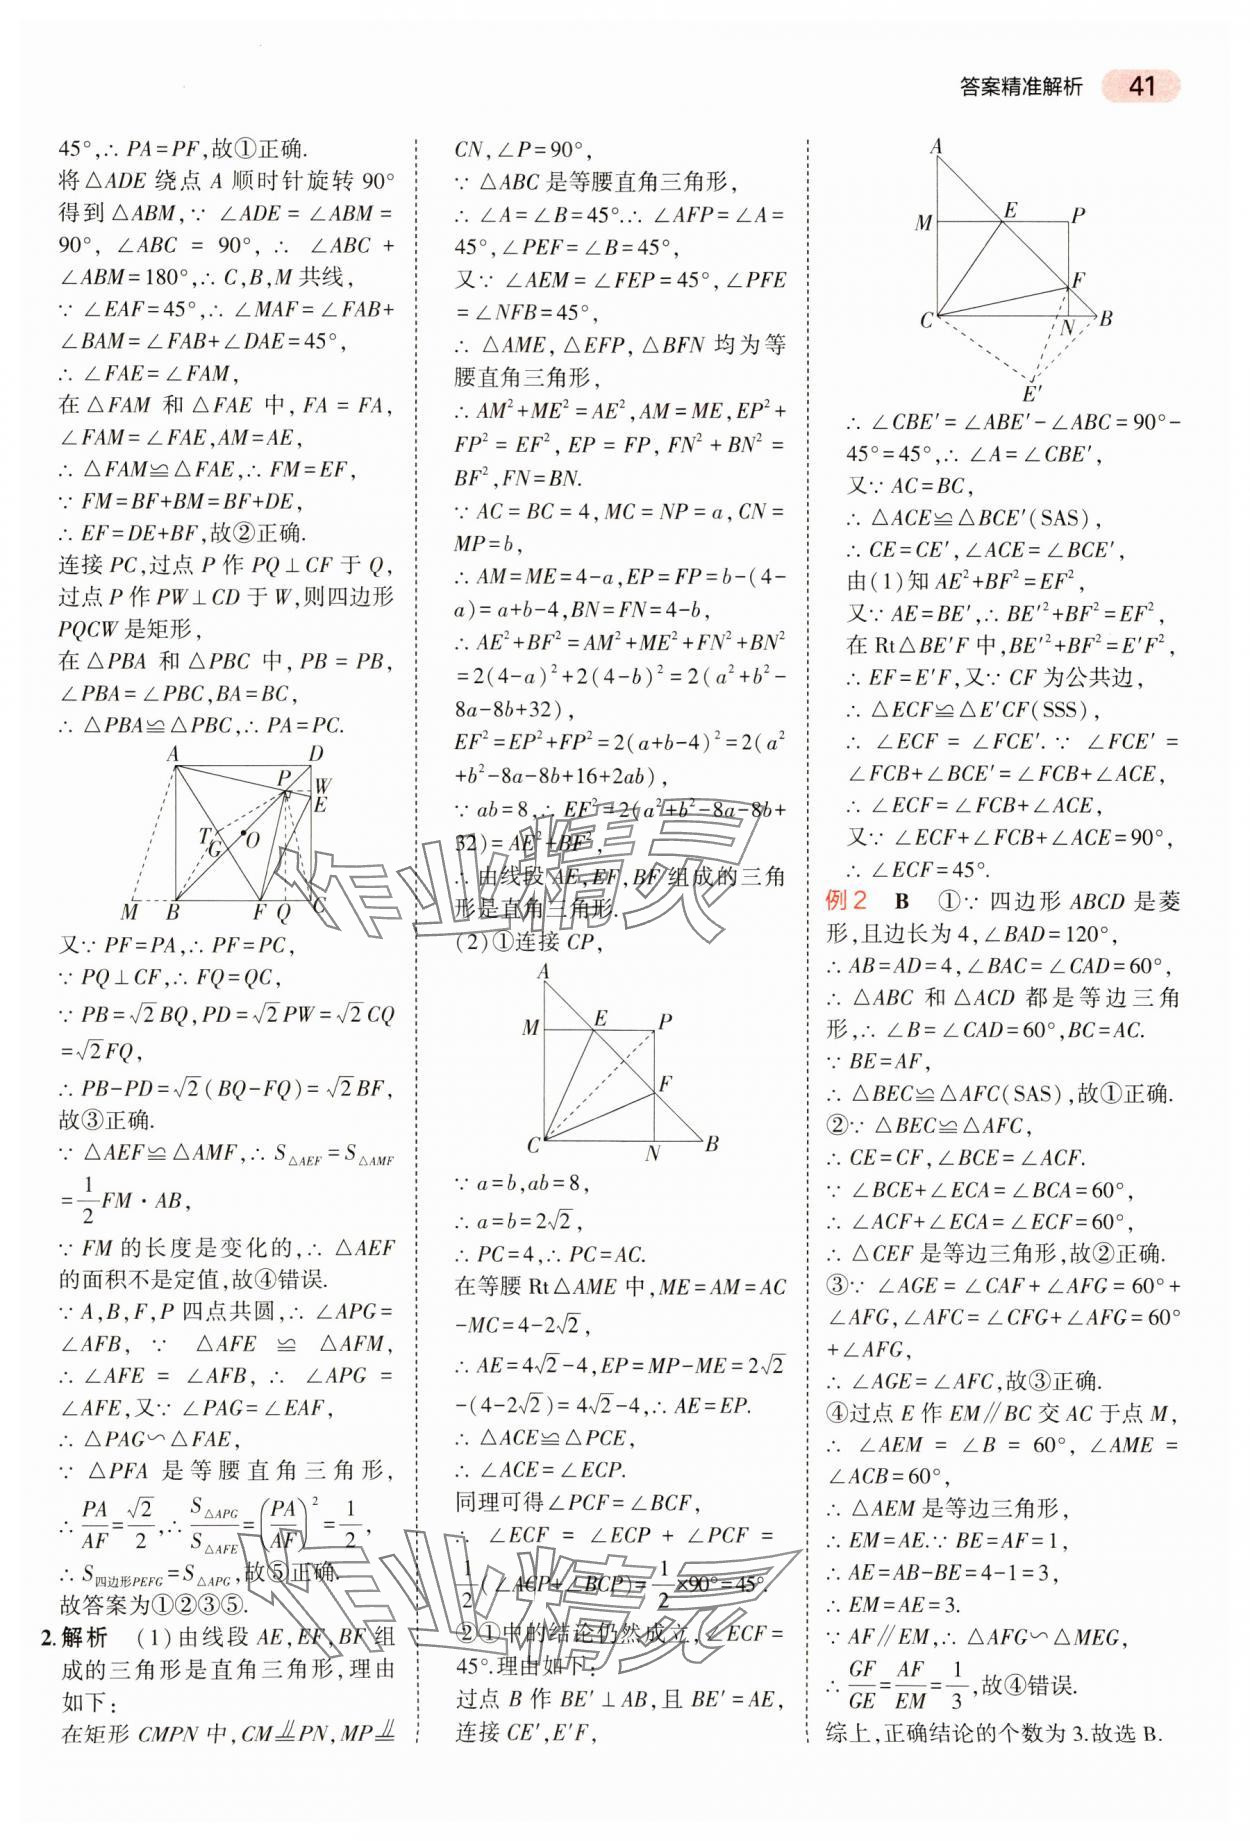 答案精准解析 41
45°,∴ PA=PF,故①正确.
将△ADE 绕点 A 顺时针旋转 90°
得到△ABM,∵ ∠ADE=∠ABM=
90°, ∠ABC = 90°, ∴ ∠ABC +
∠ABM=180°,∴ C,B,M 共线,
∵ ∠EAF=45°,∴ ∠MAF=∠FAB+
∠BAM=∠FAB+∠DAE=45°,
∴ ∠FAE=∠FAM,
在△FAM 和△FAE 中, FA = FA,
∠FAM=∠FAE,AM=AE,
∴ △FAM≌△FAE,∴ FM=EF,
∵ FM=BF+BM=BF+DE,
∴ EF=DE+BF,故②正确.
连接 PC,过点 P 作 PQ⊥CF 于 Q,
过点 P 作 PW⊥CD 于 W,则四边形
PQCW 是矩形,
在△PBA 和△PBC 中, PB = PB,
∠PBA=∠PBC,BA=BC,
∴ △PBA≌△PBC,∴ PA=PC.
A D
P W
E
T O
G
M B F Q C
又∵ PF=PA,∴ PF=PC,
∵ PQ⊥CF,∴ FQ=QC,
∵ PB=√2BQ,PD=√2PW=√2CQ
=√2FQ,
∴ PB-PD=√2(BQ-FQ)=√2BF,
故③正确.
∵ △AEF≌△AMF,∴ S△AEF=S△AMF
=1/2FM·AB,
∵ FM 的长度是变化的,∴ △AEF
的面积不是定值,故④错误.
∵ A,B,F,P 四点共圆,∴ ∠APG=
∠AFB, ∵ △AFE ≌ △AFM,
∴ ∠AFE = ∠AFB, ∴ ∠APG =
∠AFE,又∵ ∠PAG=∠EAF,
∴ △PAG∽△FAE,
∵ △PFA 是等腰直角三角形,
∴ PA/AF=√2/2,∴ S△APG/S△AFE=(PA/AF)²=1/2,
∴ S四边形PEFG=S△APG,故⑤正确.
故答案为①②③⑤.
2.解析 (1)由线段 AE,EF,BF 组
成的三角形是直角三角形,理由
如下:
在矩形 CMPN 中,CM⫫PN,MP⫫
CN,∠P=90°,
∵ △ABC 是等腰直角三角形,
∴ ∠A=∠B=45°.∴ ∠AFP=∠A=
45°,∠PEF=∠B=45°,
又∵ ∠AEM=∠FEP=45°,∠PFE
=∠NFB=45°,
∴ △AME,△EFP,△BFN 均为等
腰直角三角形,
∴ AM²+ME²=AE²,AM=ME,EP²+
FP²=EF²,EP=FP,FN²+BN²=
BF²,FN=BN.
∵ AC=BC=4,MC=NP=a,CN=
MP=b,
∴ AM=ME=4-a,EP=FP=b-(4-
a)=a+b-4,BN=FN=4-b,
∴ AE²+BF²=AM²+ME²+FN²+BN²
=2(4-a)²+2(4-b)²=2(a²+b²-
8a-8b+32),
EF²=EP²+FP²=2(a+b-4)²=2(a²
+b²-8a-8b+16+2ab),
∵ ab=8,∴ EF²=2(a²+b²-8a-8b+
32)=AE²+BF²,
∴ 由线段 AE,EF,BF 组成的三角
形是直角三角形.
(2)①连接 CP,
A
M E P
F
C N B
∵ a=b,ab=8,
∴ a=b=2√2,
∴ PC=4,∴ PC=AC.
在等腰 Rt△AME 中,ME=AM=AC
-MC=4-2√2,
∴ AE=4√2-4,EP=MP-ME=2√2
-(4-2√2)=4√2-4,∴ AE=EP.
∴ △ACE≌△PCE,
∴ ∠ACE=∠ECP.
同理可得∠PCF=∠BCF,
∴ ∠ECF = ∠ECP + ∠PCF =
1/2(∠ACP+∠BCP)=1/2×90°=45°.
②①中的结论仍然成立,∠ECF=
45°.理由如下:
过点 B 作 BE′⊥AB,且 BE′=AE,
连接 CE′,E′F,
A
M E P
F
C N B
E′
∴ ∠CBE′=∠ABE′-∠ABC=90°-
45°=45°,∴ ∠A=∠CBE′,
又∵ AC=BC,
∴ △ACE≌△BCE′(SAS),
∴ CE=CE′,∠ACE=∠BCE′,
由(1)知 AE²+BF²=EF²,
又∵ AE=BE′,∴ BE′²+BF²=EF²,
在 Rt△BE′F 中,BE′²+BF²=E′F²,
∴ EF=E′F,又∵ CF 为公共边,
∴ △ECF≌△E′CF(SSS),
∴ ∠ECF = ∠FCE′. ∵ ∠FCE′ =
∠FCB+∠BCE′=∠FCB+∠ACE,
∴ ∠ECF=∠FCB+∠ACE,
又∵ ∠ECF+∠FCB+∠ACE=90°,
∴ ∠ECF=45°.
例2 B ①∵ 四边形 ABCD 是菱
形,且边长为 4,∠BAD=120°,
∴ AB=AD=4,∠BAC=∠CAD=60°,
∴ △ABC 和△ACD 都是等边三角
形,∴ ∠B=∠CAD=60°,BC=AC.
∵ BE=AF,
∴ △BEC≌△AFC(SAS),故①正确.
②∵ △BEC≌△AFC,
∴ CE=CF,∠BCE=∠ACF.
∵ ∠BCE+∠ECA=∠BCA=60°,
∴ ∠ACF+∠ECA=∠ECF=60°,
∴ △CEF 是等边三角形,故②正确.
③∵ ∠AGE=∠CAF+∠AFG=60°+
∠AFG,∠AFC=∠CFG+∠AFG=60°
+∠AFG,
∴ ∠AGE=∠AFC,故③正确.
④过点 E 作 EM∥BC 交 AC 于点 M,
∴ ∠AEM = ∠B = 60°, ∠AME =
∠ACB=60°,
∴ △AEM 是等边三角形,
∴ EM=AE.∵ BE=AF=1,
∴ AE=AB-BE=4-1=3,
∴ EM=AE=3.
∵ AF∥EM,∴ △AFG∽△MEG,
∴ GF/GE=AF/EM=1/3,故④错误.
综上,正确结论的个数为 3.故选 B.
作业精灵
作业精灵